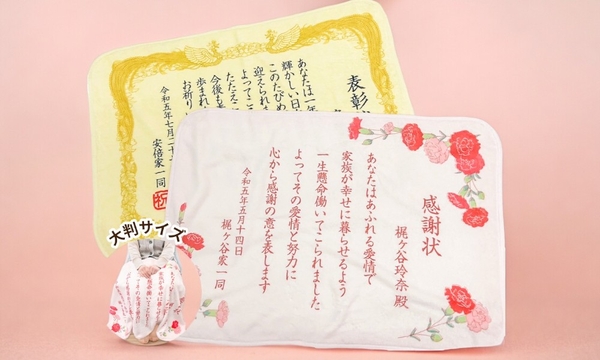 表彰
あなたは一年
輝かしい日
このたびめ
迎えられ
よってここ
たたえ
今後も
歩まれ
お祈り
令和五年七月二十
安倍家一同
感謝状
梶ケ谷玲奈 殿
あなたはあふれる愛情で
家族が幸せに暮らせるよう
一生懸命働いてこられました
よってその愛情と努力に
心から感謝の意を表します
令和五年五月十四日
梶ケ谷家一同
大判サイズ